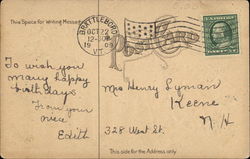 This Space for Writing Messages
BRATTLEBORO
OCT 22
12-30P
1909
VT.
Post Card
To wish you
many happy
birthdays
From your
niece
Edith
Mrs Henry Lyman
Keene
N.H
328 West St.
This side for the Address only